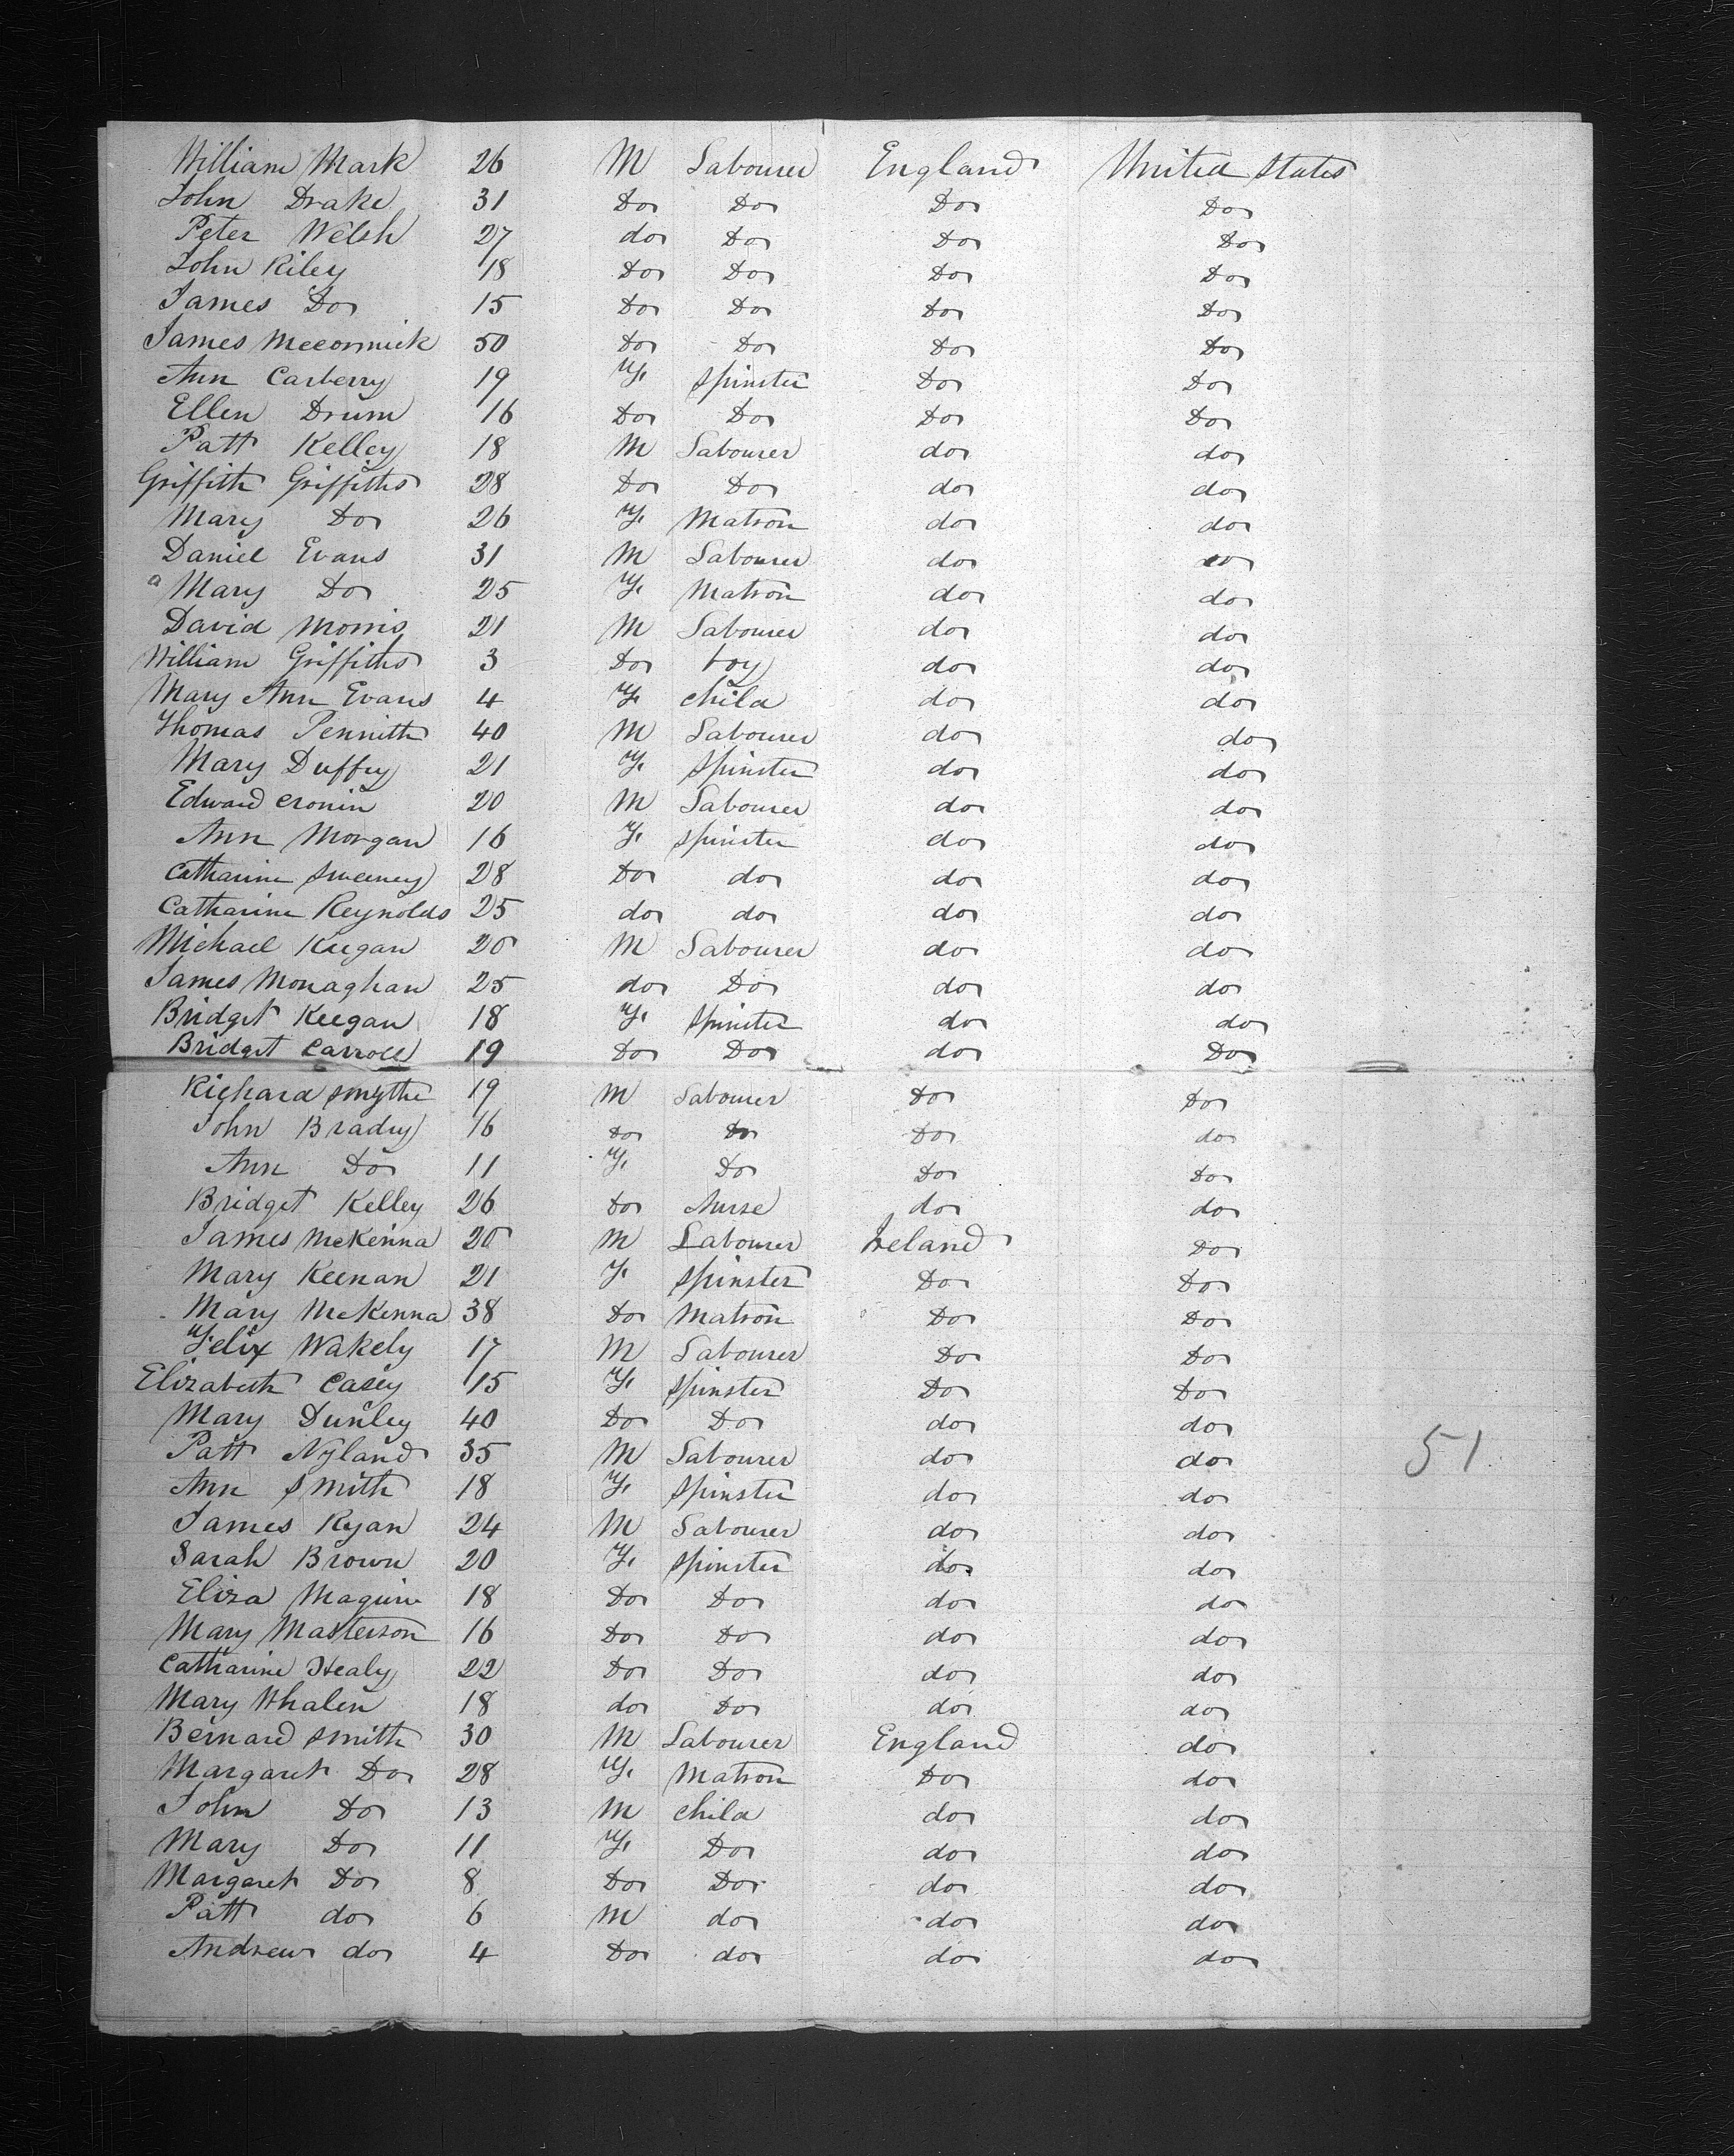 William Mark 26 M Labourer England United States
John Drake 31 Do Do Do Do
Peter Welsh 27 do Do Do Do
John Riley 18 Do Do Do Do
James Do 15 Do Do Do Do
James McCormick 50 Do Do Do Do
Ann Carberry 19 F. Spinster Do Do
Ellen Drum 16 Do Do Do Do
Patt Kelley 18 M Labourer do do
Griffith Griffiths 28 Do Do do do
Mary Do 26 F. Matron do do
Daniel Evans 31 M Labourer do do
a Mary Do 25 F. Matron do do
David Morris 21 M Labourer do do
William Griffiths 3 Do boy do do
Mary Ann Evans 4 F. child do do
Thomas Pennith 40 M Labourer do do
Mary Duffey 21 F. Spinster do do
Edward Cronin 20 M Labourer do do
Ann Morgan 16 F. Spinster do do
Catharine Sweeney 28 Do do do do
Catharine Reynolds 25 do do do do
Michael Keegan 20 M Labourer do do
James Monaghan 25 do Do do do
Bridget Keegan 18 F. Spinster do do
Bridget Carroll 19 Do Do do Do
Richard Smythe 19 M Labourer Do Do
John Brady 16 Do Do Do do
Ann Do 11 F. Do Do Do
Bridget Kelley 26 Do Nurse do do
James McKenna 20 M Labourer Ireland Do
Mary Keenan 21 F. Spinster Do Do
Mary McKenna 38 Do Matron Do Do
Felix Wakely 17 M Labourer Do Do
Elizabeth Casey 15 F. Spinster Do Do
Mary Dunley 40 Do Do do do
Patt Nyland 35 M Labourer do do 51
Ann Smith 18 F. Spinster do do
James Ryan 24 M Labourer do do
Sarah Brown 20 F. Spinster do do
Eliza Maguire 18 Do Do do do
Mary Masterson 16 Do Do do do
Catharine Healy 22 Do Do do do
Mary Whalen 18 do Do do do
Bernard Smith 30 M Labourer England do
Margaret Do 28 F. Matron Do do
John Do 13 M child do do
Mary Do 11 F. Do do do
Margaret Do 8 Do Do do do
Patt do 6 M do do do
Andrew do 4 Do do do do